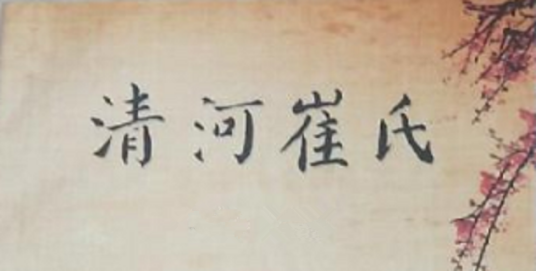 清河崔氏